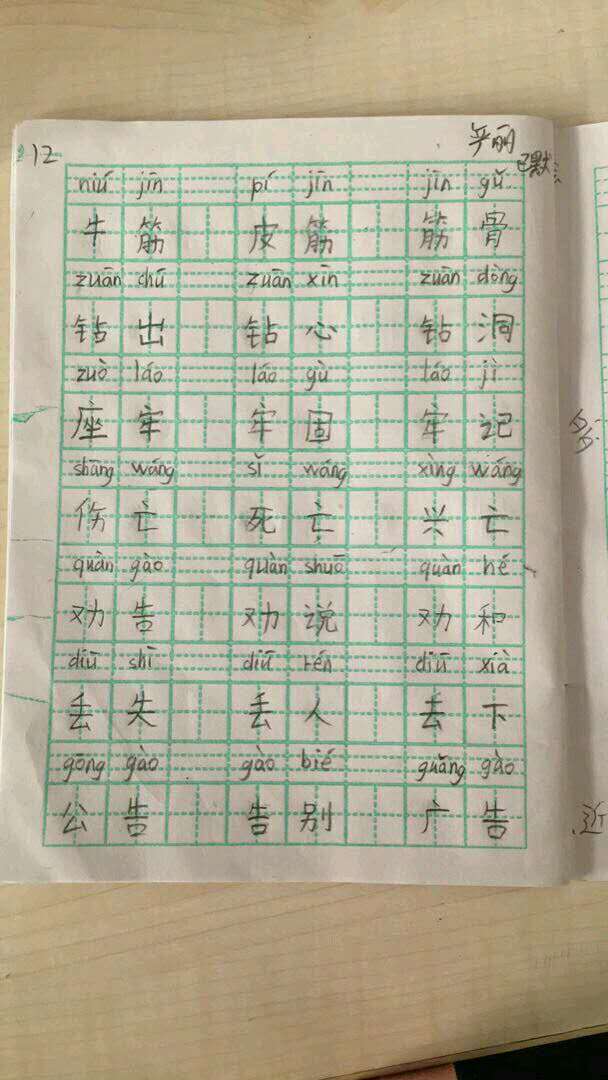 12
已默
niú jīn pí jīn jīn gǔ
牛筋 皮筋 筋骨
zuān chū zuān xīn zuān dòng
钻出 钻心 钻洞
zuò láo láo gù láo jì
座牢 牢固 牢记
shāng wáng sǐ wáng xìng wáng
伤亡 死亡 兴亡
quàn gào quàn shuō quàn hé
劝告 劝说 劝和
diū shī diū rén diū xià
丢失 丢人 丢下
gōng gào gào bié guǎng gào
公告 告别 广告
近